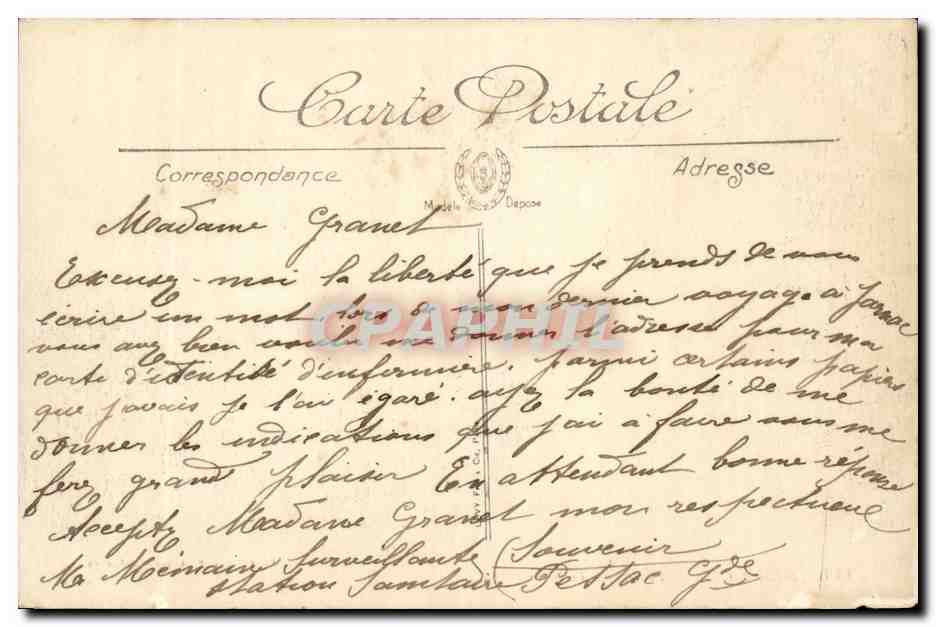 Carte Postale
Correspondance
Adresse
Modèle Déposé
Madame Granet
Excusez-moi la liberté que je prends de vous
écrire un mot lors de mon dernier voyage à Jarnac
vous avez bien voulu me donner l'adresse pour ma
carte d'identité d'infirmière. parmi certains papiers
que j'avais je l'ai égaré. ayez la bonté de me
donner les indications que j'ai à faire vous me
ferez grand plaisir En attendant bonne réponse
Acceptez Madame Granet mon respectueux
Souvenir
Surveillante
station Sanitaire Pessac Gde
CPAPHIL